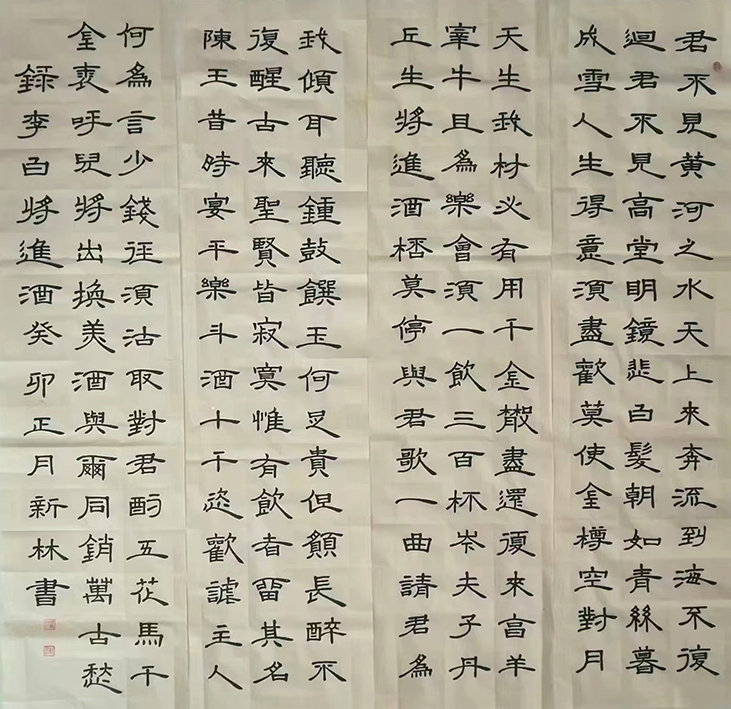 君不見黄河之水天上來奔流到海不復
迴君不見高堂明鏡悲白髮朝如青絲暮
成雪人生得意須盡歡莫使金樽空對月
天生我材必有用千金散盡還復來亯羊
宰牛且為樂會須一飲三百杯岑夫子丹
丘生將進酒桮莫停與君歌一曲請君為
我傾耳聽鍾鼓饌玉何足貴但願長醉不
復醒古來聖賢皆寂寞惟有飲者留其名
陳王昔時宴平樂斗酒十千恣歡謔主人
何為言少錢徑須沽取對君酌五花馬千
金裘呼兒將出換美酒與爾同銷萬古愁
録李白將進酒癸卯正月新林書